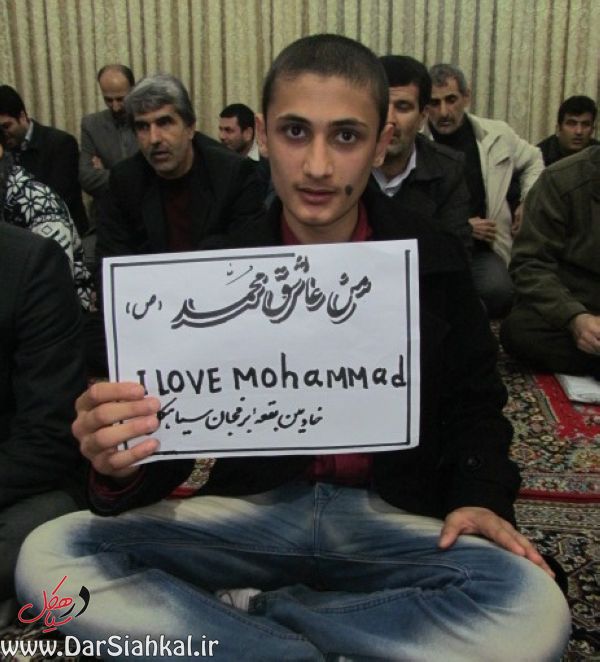 من عاشق محمّد (ص)
I LOVE MohaMMad
خادمین بقعه ابرفجان سیاهکل
در سیاهکل
www.DarSiahkal.ir